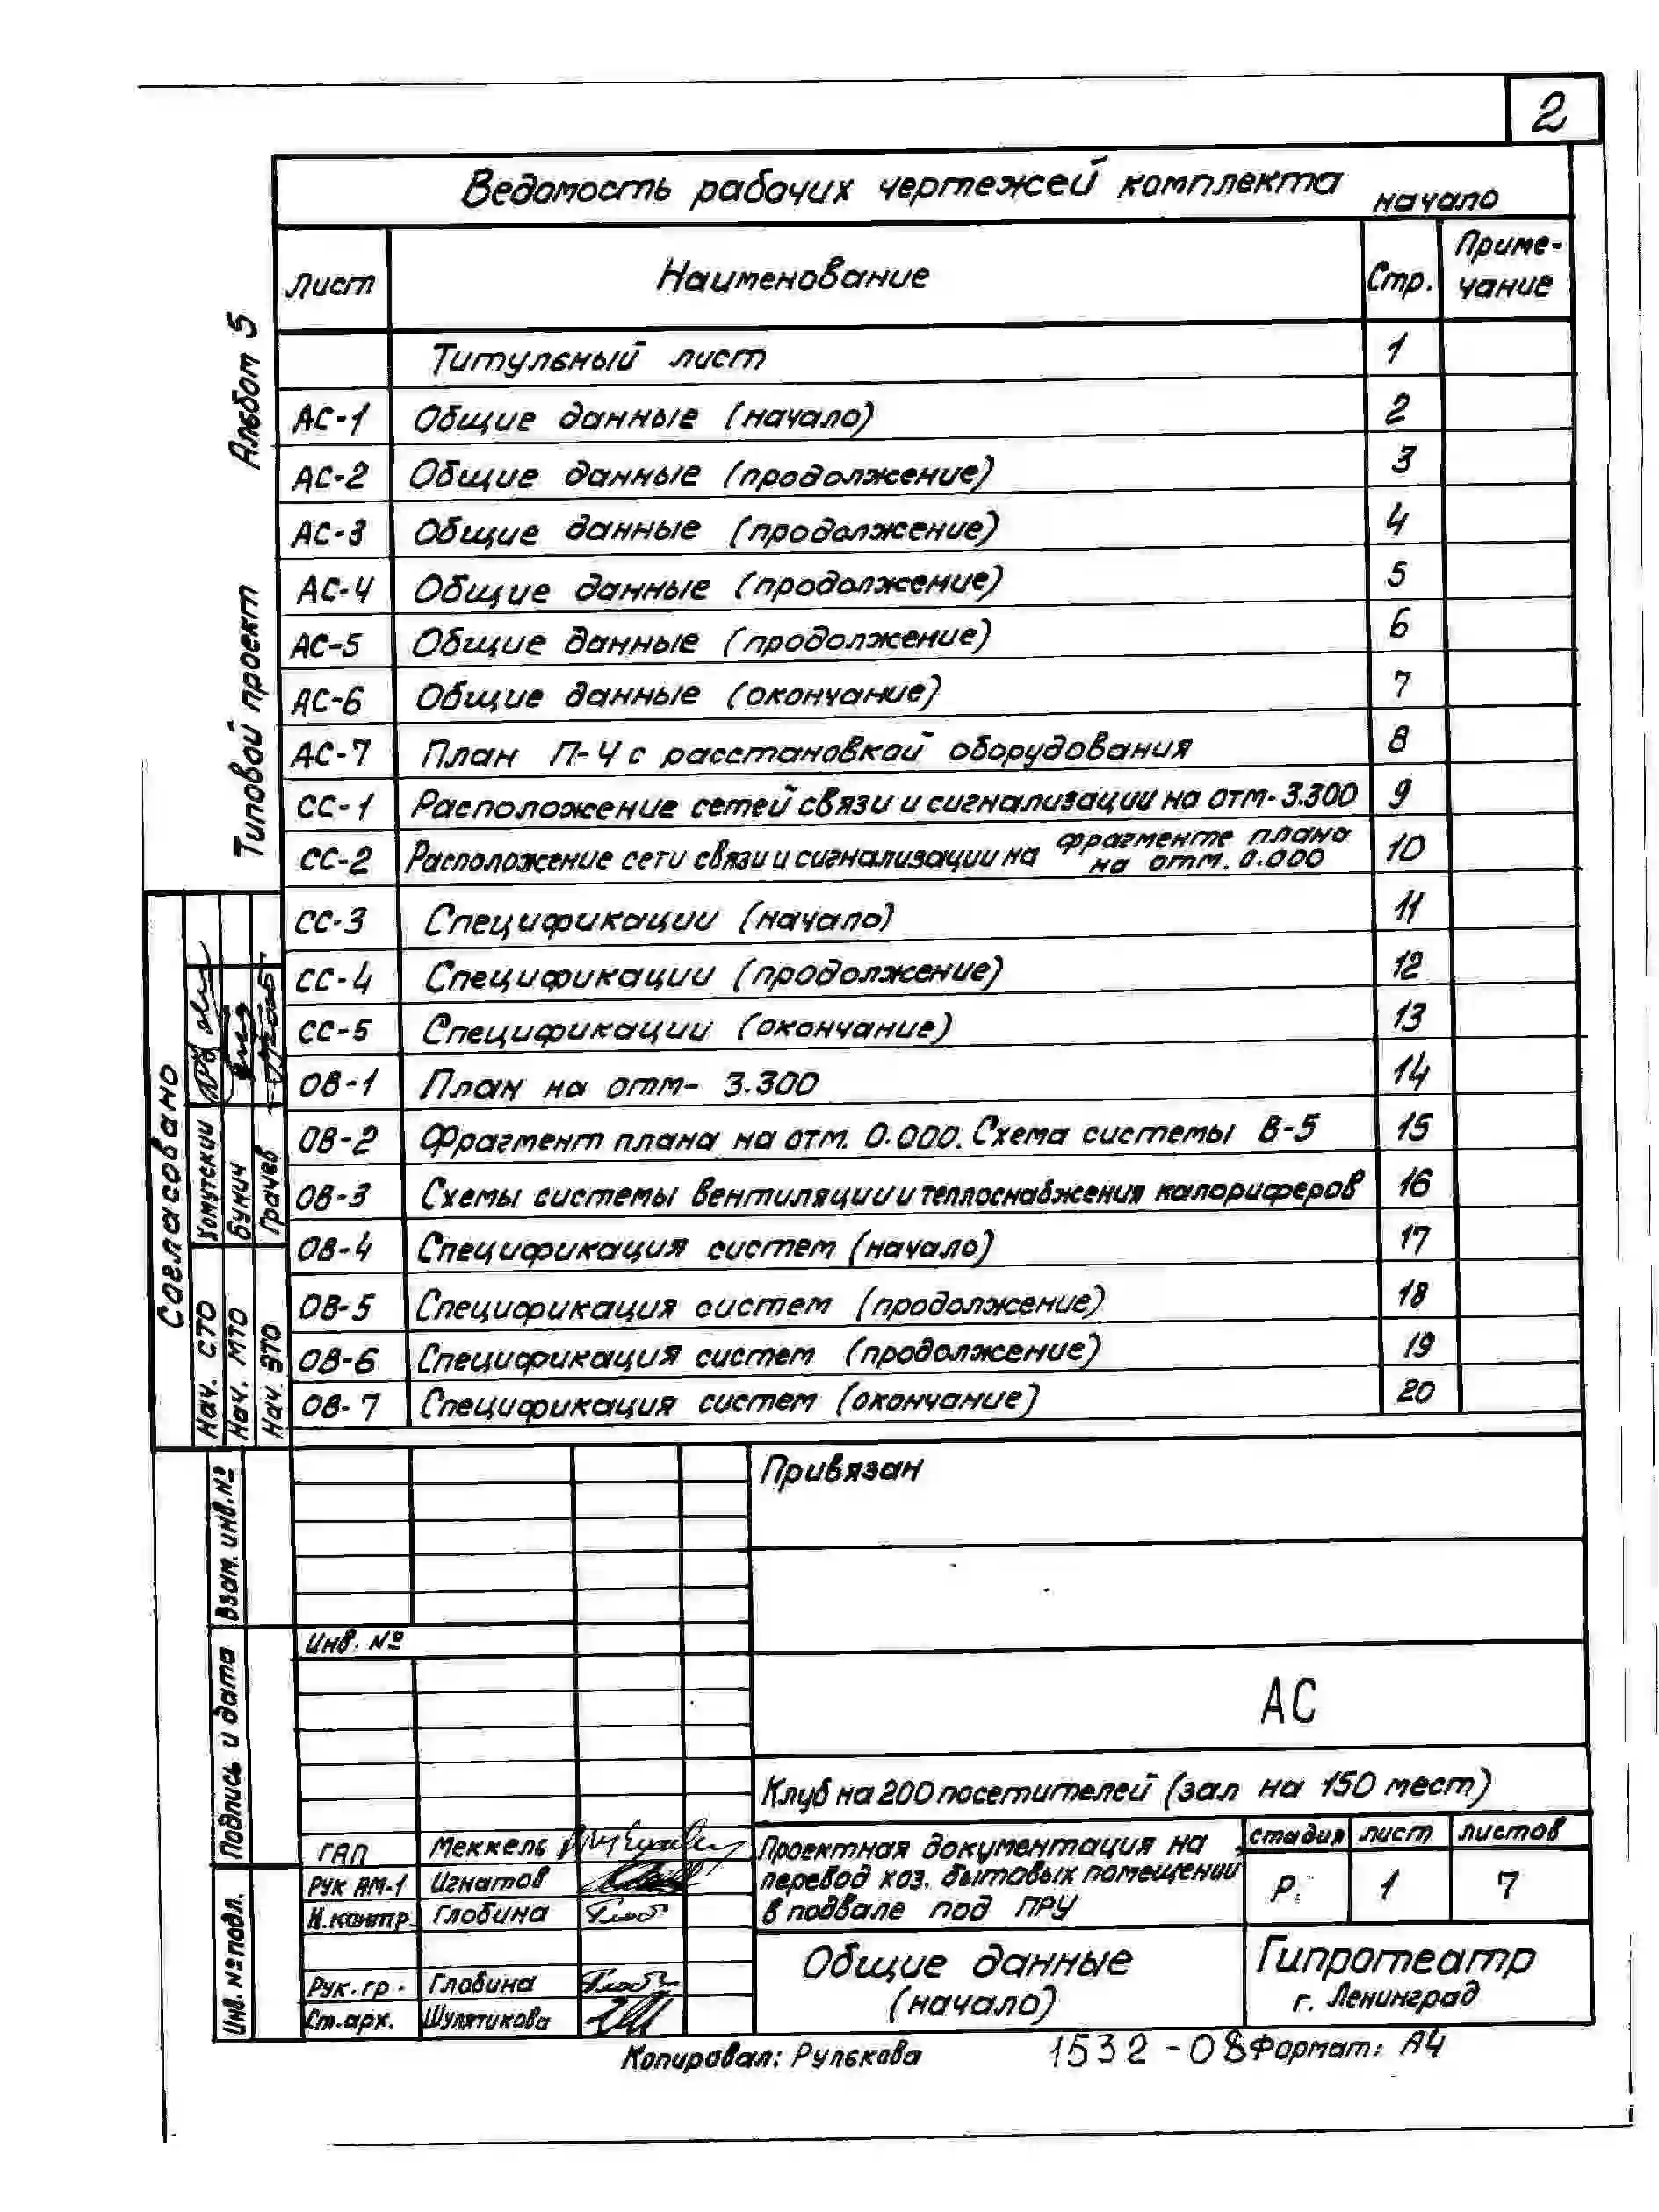 2
Ведомость рабочих чертежей комплекта начало
Лист Наименование Стр. Приме-
чание
Титульный лист 1
АС-1 Общие данные (начало) 2
АС-2 Общие данные (продолжение) 3
АС-3 Общие данные (продолжение) 4
АС-4 Общие данные (продолжение) 5
АС-5 Общие данные (продолжение) 6
АС-6 Общие данные (окончание) 7
АС-7 План П-4 с расстановкой оборудования 8
СС-1 Расположение сетей связи и сигнализации на отм-3.300 9
СС-2 Расположение сети связи и сигнализации на фрагменте плана
на отм. 0.000 10
СС-3 Спецификации (начало) 11
СС-4 Спецификации (продолжение) 12
СС-5 Спецификации (окончание) 13
ОВ-1 План на отм- 3.300 14
ОВ-2 Фрагмент плана на отм. 0.000. Схема системы В-5 15
ОВ-3 Схемы системы вентиляции и теплоснабжения калориферов 16
ОВ-4 Спецификация систем (начало) 17
ОВ-5 Спецификация систем (продолжение) 18
ОВ-6 Спецификация систем (продолжение) 19
ОВ-7 Спецификация систем (окончание) 20
Типовой проект Альбом 5
Согласовано
Нач. СТО Хомутский
Нач. МТО Бунич
Нач. ЭТО Грачев
Взам. инв. №
Подпись и дата
Инв. № подл.
Привязан
Инв. №
АС
Клуб на 200 посетителей (зал на 150 мест)
ГАП Меккель
Рук АМ-1 Игнатов
Н.контр. Глобина
Рук. гр. Глобина
Ст.арх. Шулятикова
Проектная документация на
перевод хоз. бытовых помещений
в подвале под ПРУ
стадия лист листов
Р. 1 7
Общие данные
(начало)
Гипротеатр
г. Ленинград
Копировал: Рулькова 1532-08 Формат: А4